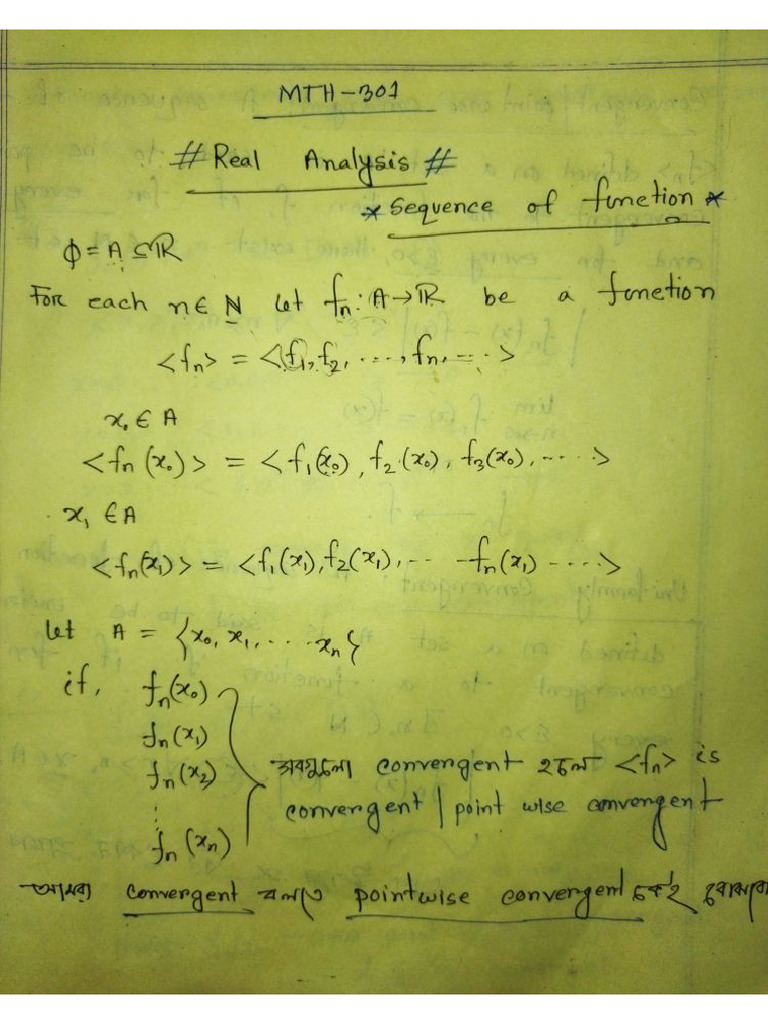 MTH-301
# Real Analysis #
* Sequence of function *
ϕ = A ⊆ ℝ
For each n ∈ ℕ let fₙ : A → ℝ be a function
<fₙ> = <f₁, f₂, ...., fₙ, ...>
x₀ ∈ A
<fₙ(x₀)> = <f₁(x₀), f₂(x₀), f₃(x₀), ....>
x₁ ∈ A
<fₙ(x₁)> = <f₁(x₁), f₂(x₁), ... fₙ(x₁) ....>
let A = {x₀, x₁, .... xₙ}
if, fₙ(x₀)
fₙ(x₁)
fₙ(x₂)
⋮
fₙ(xₙ)
সবগুলো convergent হলে <fₙ> is
convergent | point wise convergent
আমরা convergent বলতে pointwise convergent কেই বোঝবো